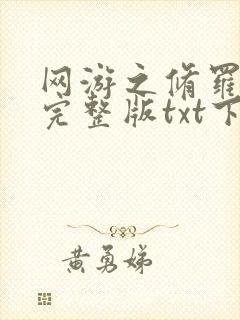 网游之脩羅
完整版txt下
黄勇娣